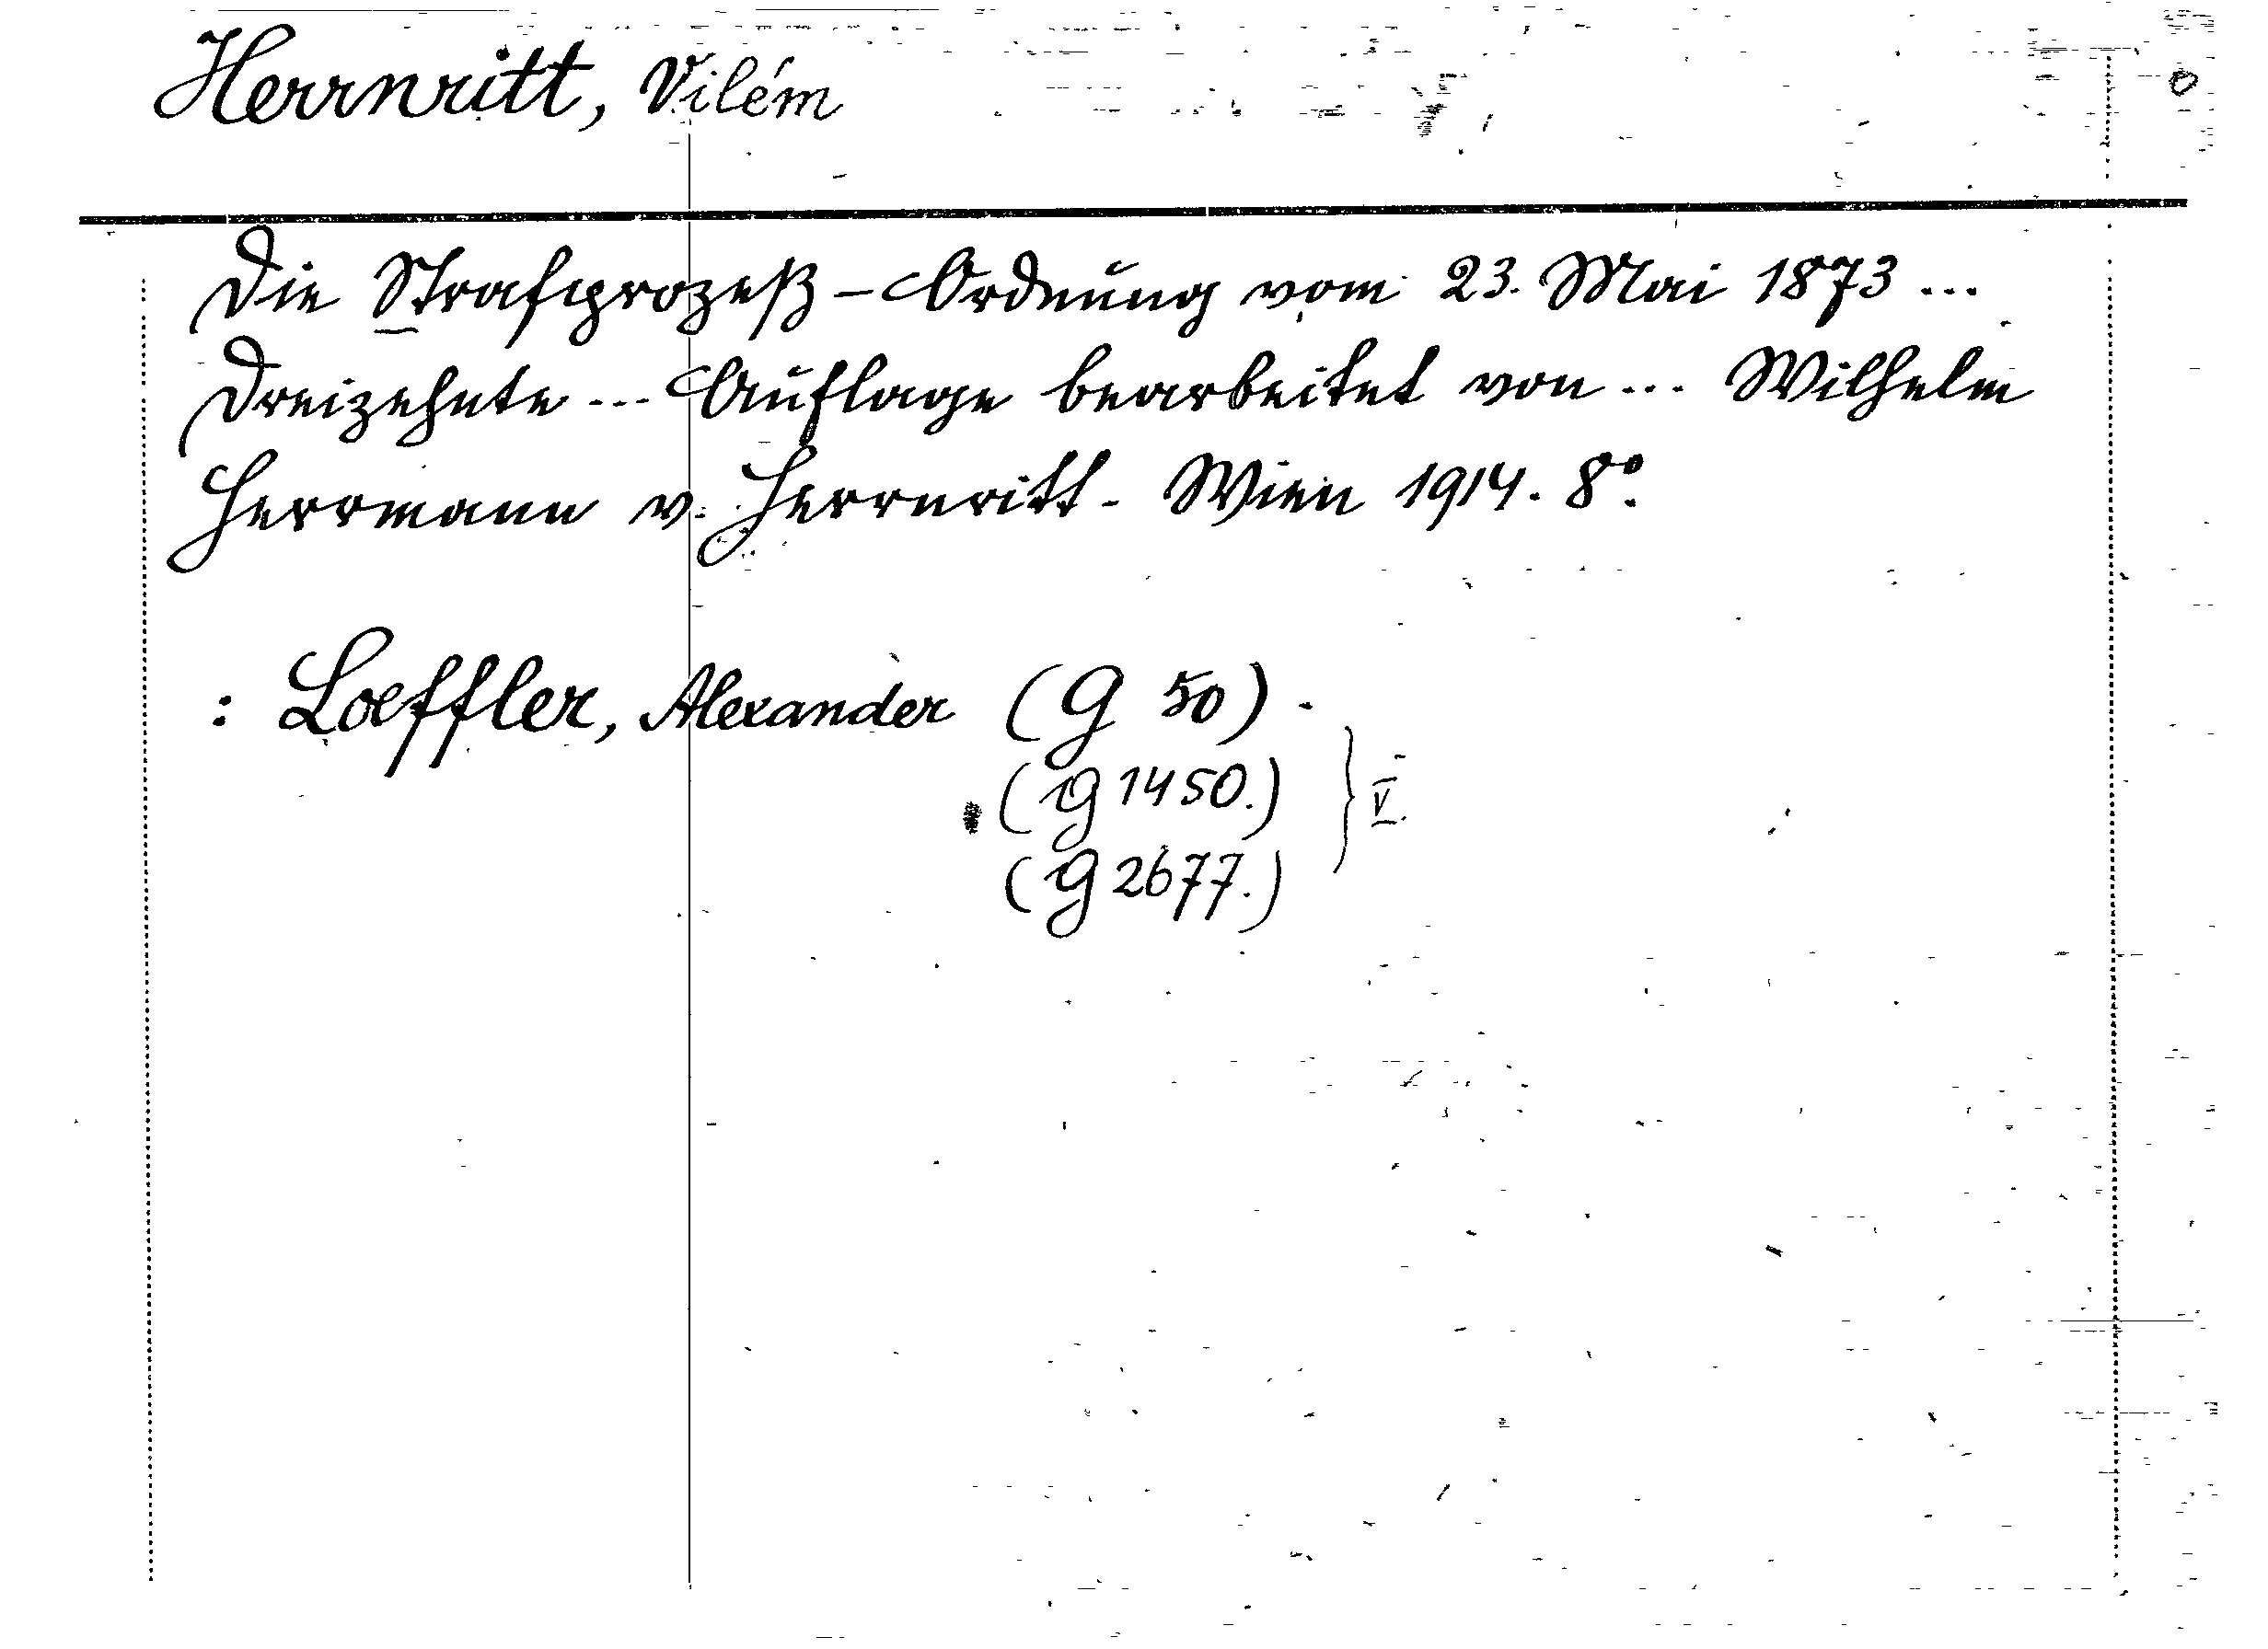 Herrnritt, Vilém
Die Strafprozeß-Ordnung vom 23. Mai 1873 ...
Dreizehnte ... Auflage bearbeitet von ... Wilhelm
Herrmann v. Herrnritt. Wien 1914. 8°.
: Loeffler, Alexander (G 50).
(G 1450.)
(G 2677.) } V.